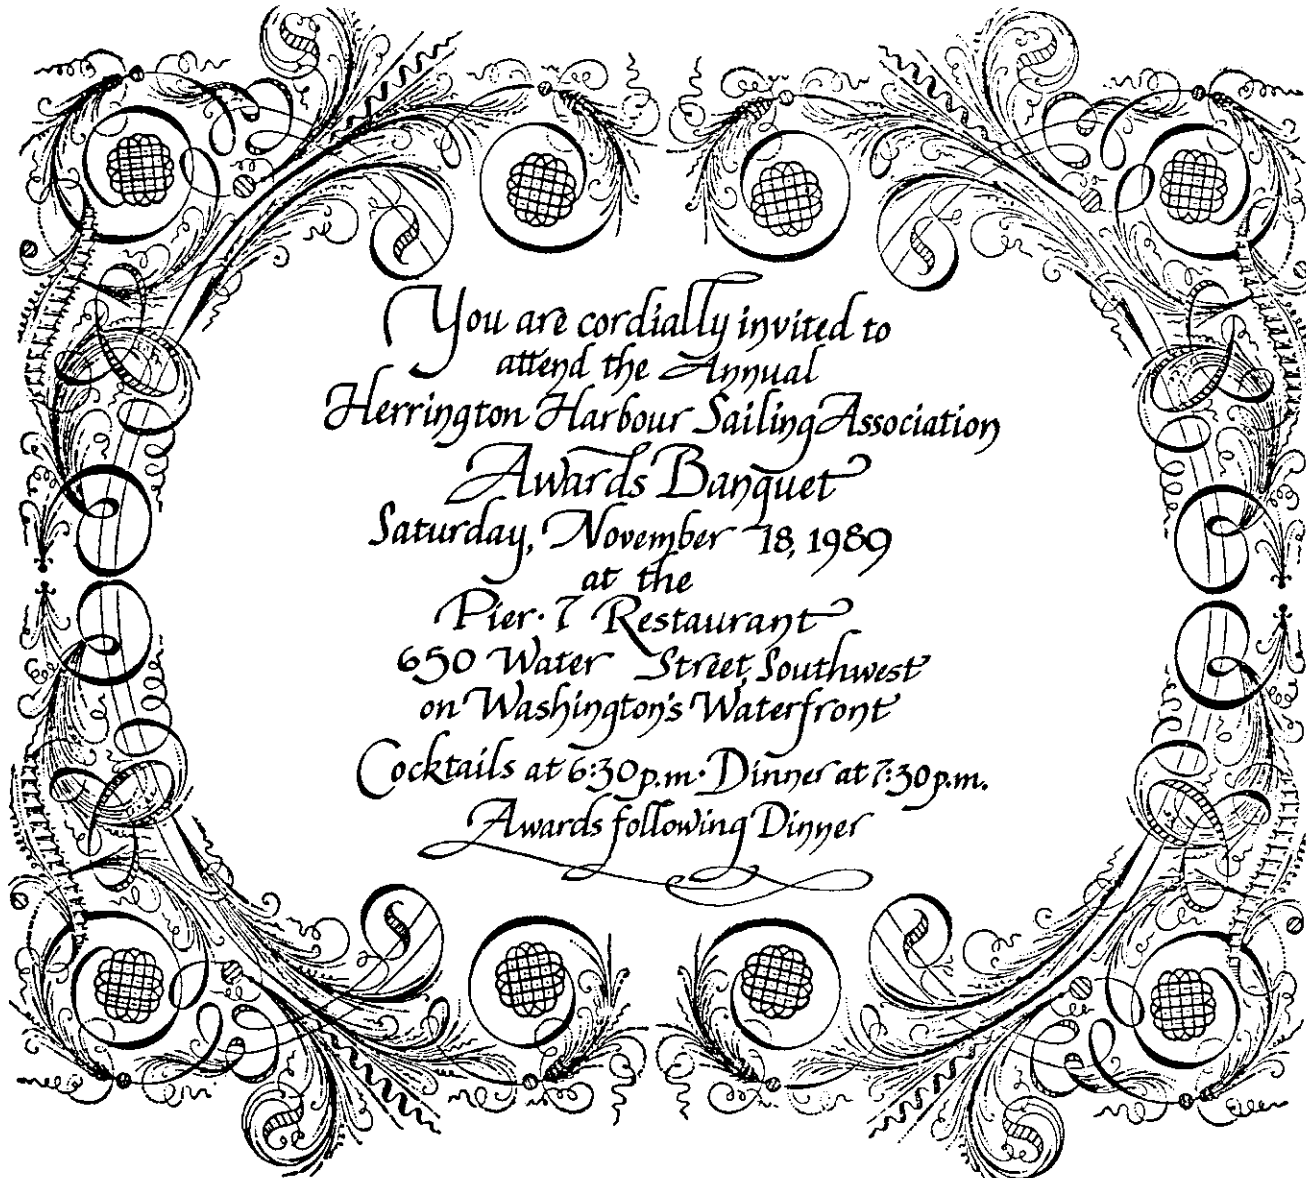 You are cordially invited to
attend the Annual
Herrington Harbour Sailing Association
Awards Banquet
Saturday, November 18, 1989
at the
Pier·7 Restaurant
650 Water Street, Southwest
on Washington's Waterfront
Cocktails at 6:30p.m· Dinner at 7:30p.m.
Awards following Dinner